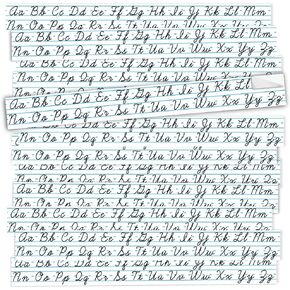 Aa Bb Cc Dd Ee Ff Gg Hh Ii Jj Kk Ll Mm
Nn Oo Pp Qq Rr Ss Tt Uu Vv Ww Xx Yy Zz
Aa Bb Cc Dd Ee Ff Gg Hh Ii Jj Kk Ll Mm
Nn Oo Pp Qq Rr Ss Tt Uu Vv Ww Xx Yy Zz
Aa Bb Cc Dd Ee Ff Gg Hh Ii Jj Kk Ll Mm
Nn Oo Pp Qq Rr Ss Tt Uu Vv Ww Xx Yy Zz
Aa Bb Cc Dd Ee Ff Gg Hh Ii Jj Kk Ll Mm
Nn Oo Pp Qq Rr Ss Tt Uu Vv Ww Xx Yy Zz
Aa Bb Cc Dd Ee Ff Gg Hh Ii Jj Kk Ll Mm
Nn Oo Pp Qq Rr Ss Tt Uu Vv Ww Xx Yy Zz
Aa Bb Cc Dd Ee Ff Gg Hh Ii Jj Kk Ll Mm
Nn Oo Pp Qq Rr Ss Tt Uu Vv Ww Xx Yy Zz
Aa Bb Cc Dd Ee Ff Gg Hh Ii Jj Kk Ll Mm
Nn Oo Pp Qq Rr Ss Tt Uu Vv Ww Xx Yy Zz
Aa Bb Cc Dd Ee Ff Gg Hh Ii Jj Kk Ll Mm
Nn Oo Pp Qq Rr Ss Tt Uu Vv Ww Xx Yy Zz
Aa Bb Cc Dd Ee Ff Gg Hh Ii Jj Kk Ll Mm
Nn Oo Pp Qq Rr Ss Tt Uu Vv Ww Xx Yy Zz